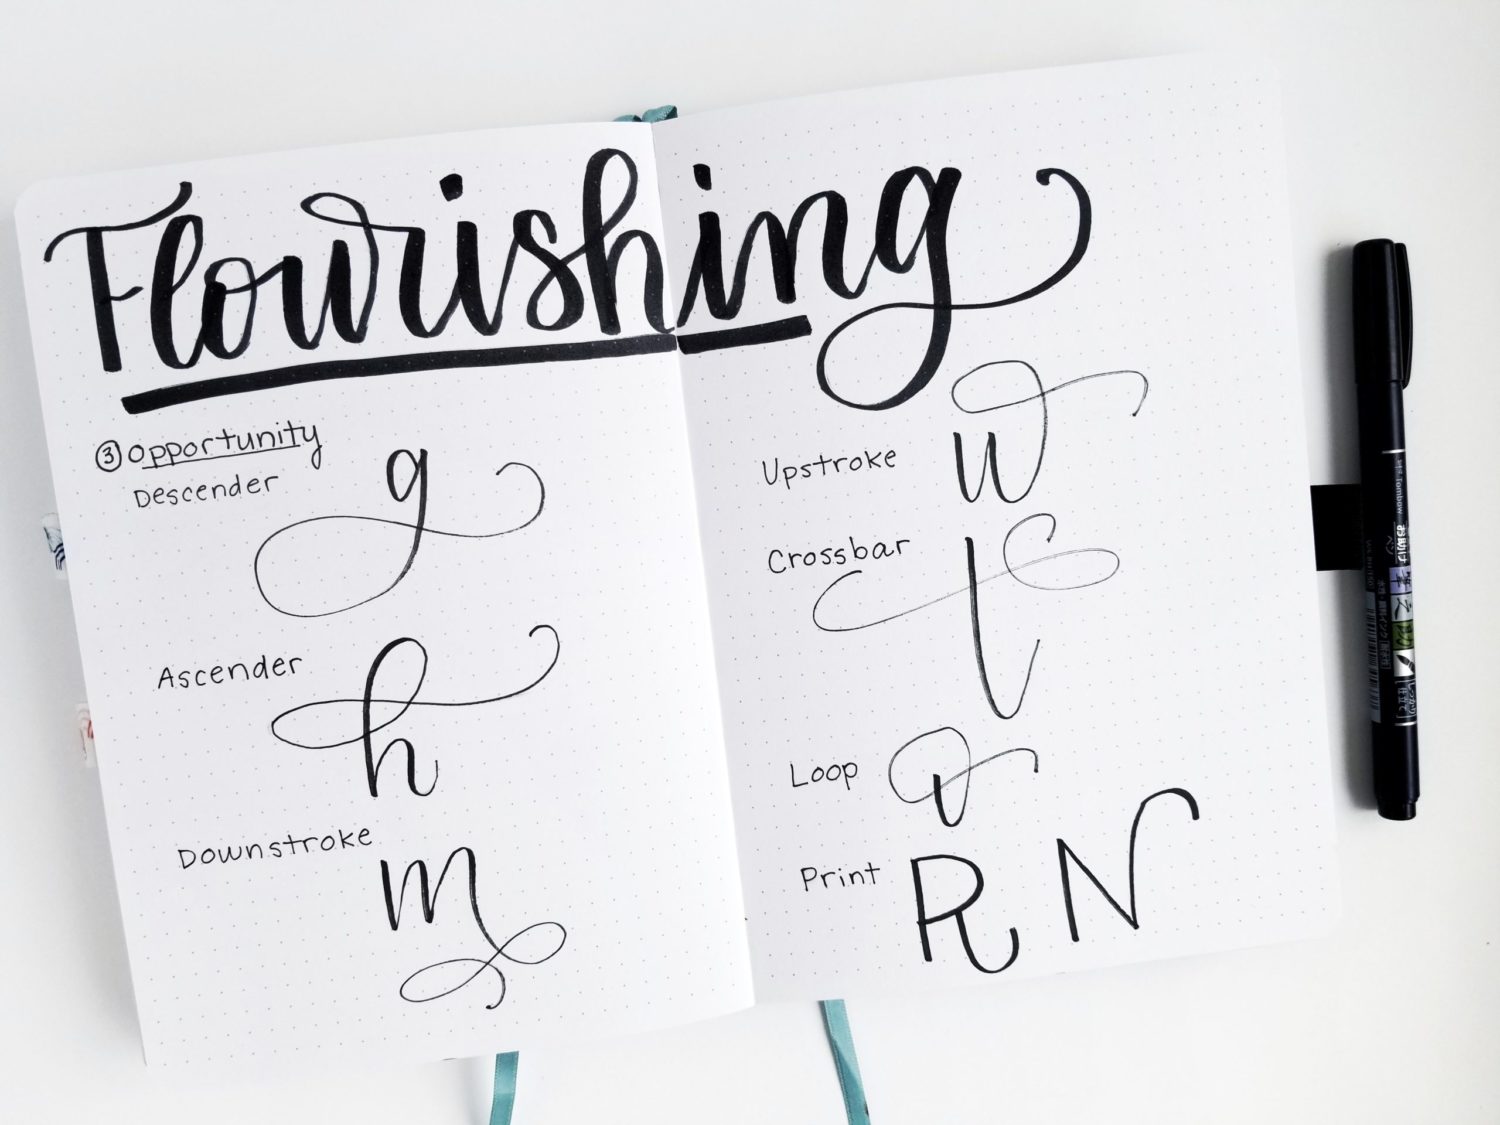 Flourishing
③ Opportunity
Descender g
Ascender h
Downstroke m
Upstroke w
Crossbar t
Loop o
Print R N
Tombow